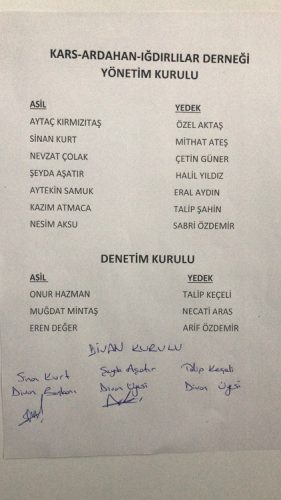 KARS-ARDAHAN-IĞDIRLILAR DERNEĞİ
YÖNETİM KURULU
ASİL YEDEK
AYTAÇ KIRMIZITAŞ ÖZEL AKTAŞ
SİNAN KURT MİTHAT ATEŞ
NEVZAT ÇOLAK ÇETİN GÜNER
ŞEYDA AŞATIR HALİL YILDIZ
AYTEKİN SAMUK ERAL AYDIN
KAZIM ATMACA TALİP ŞAHİN
NESİM AKSU SABRİ ÖZDEMİR
DENETİM KURULU
ASİL YEDEK
ONUR HAZMAN TALİP KEÇELİ
MUĞDAT MİNTAŞ NECATİ ARAS
EREN DEĞER ARİF ÖZDEMİR
DİVAN KURULU
Sinan Kurt Şeyda Aşatır Talip Keçeli
Divan Başkanı Divan Üyesi Divan Üyesi